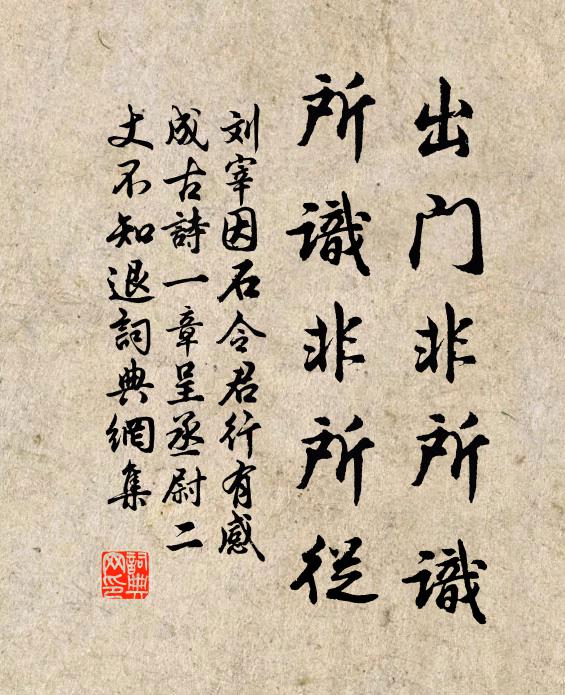 出门非所識
所識非所從
刘宰因石令君行有感
成古詩一章呈丞尉二
丈不知退詞典網集
詞典
网印